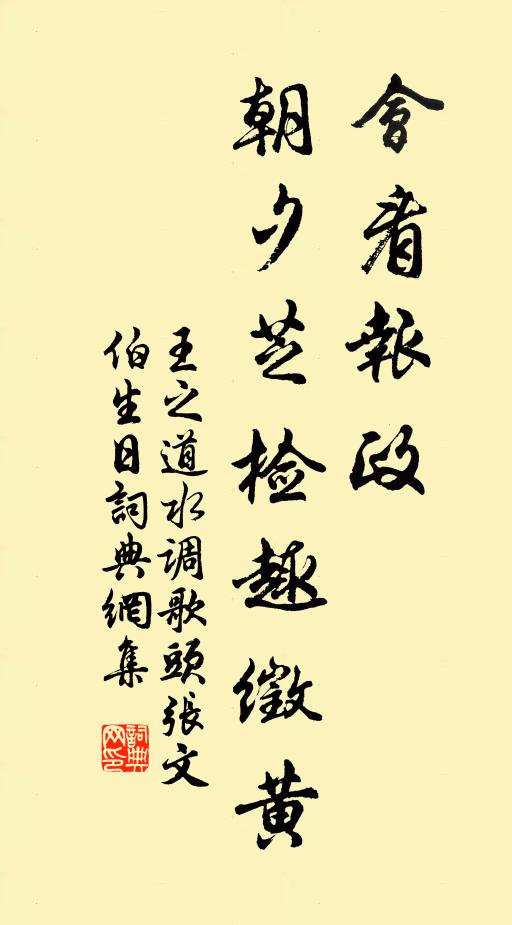 會看報政
朝夕芝檢趣徵黄
王之道水调歌頭張文
伯生日詞典網集
詞典
网印